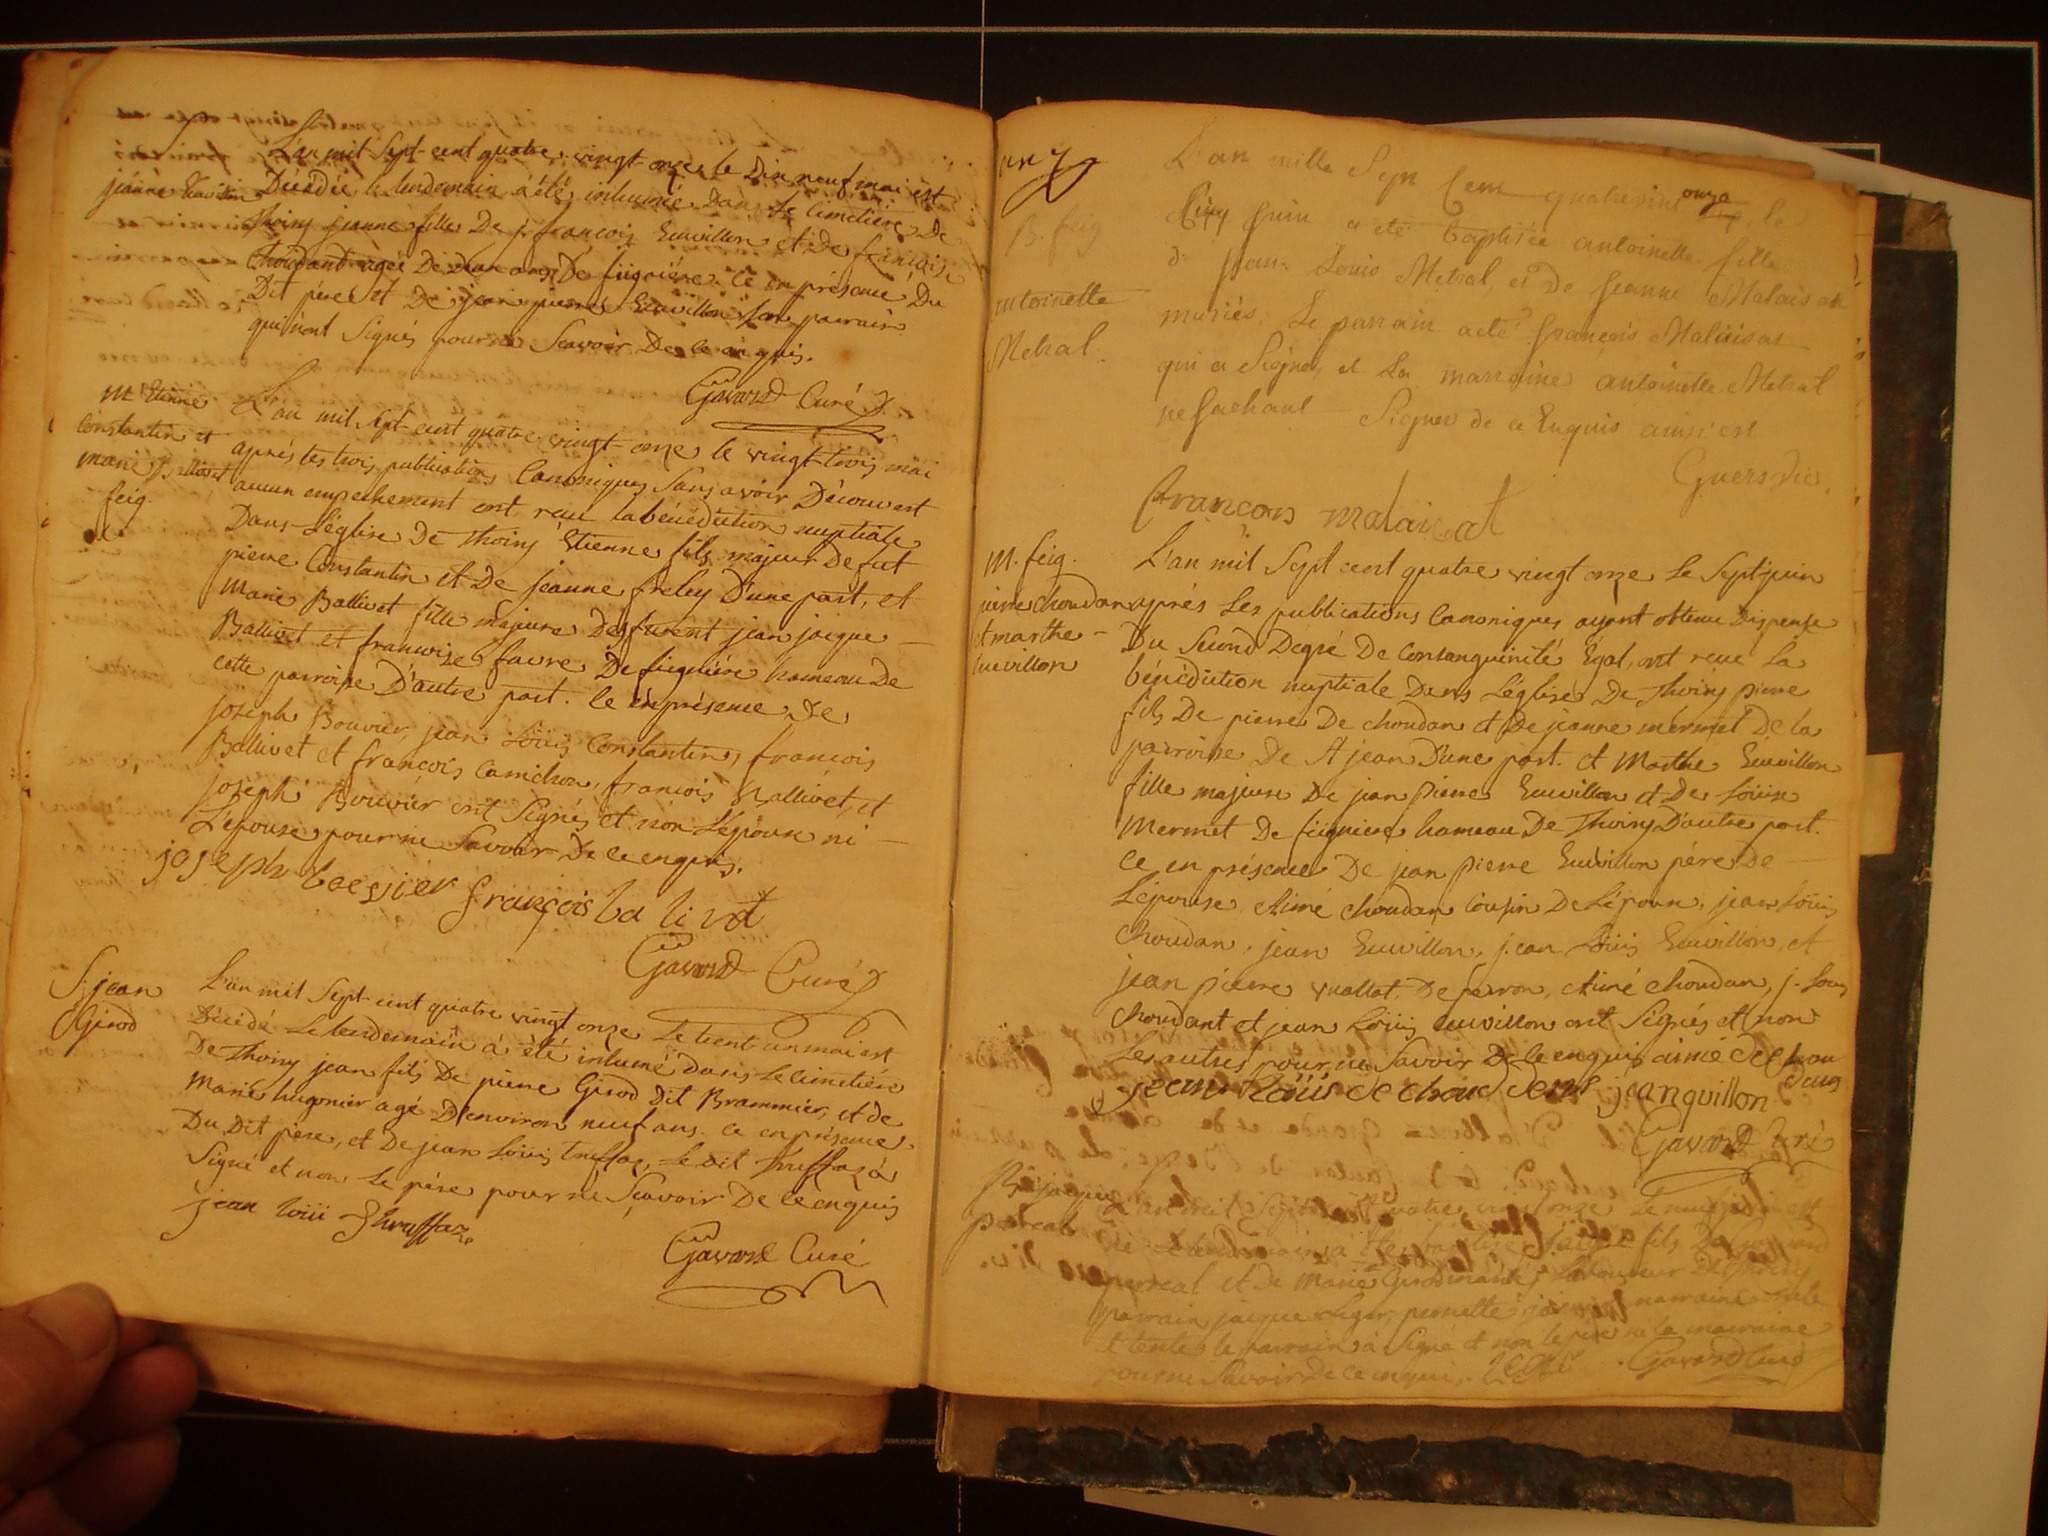 S.
jeanne
L'an mil Sept-cent quatre-vingt-onze le Dix neuf mai est
Décédée le lendemain à été inhumée Dans le Cimetière De
Thoiry jeanne fille De j. françois Euvillon et De françoise
choudant agée De deux ans De feigniére. Ce en présence Du
Dit père et De jean pierre Euvillon Son parrain
qui n'ont Signés pour ne Scavoir De ce enquis.
Gavard Curé
M. Etienne
Constantin et
marie Ballivet
feig.
L'an mil Sept-cent quatre-vingt-onze le vingt-trois mai
après les trois publications Canoniques Sans avoir Découvert
aucun empechement ont reçu la bénédiction nuptiale
Dans L'église De Thoiry Etienne fils majeur De fut
pierre Constantin et De jeanne freley D'une part, et
Marie Ballivet fille majeure Des furent jean jacque
Ballivet et francoise favre De feigniére hameau De
cette parroisse D'autre part. Ce en présence De
joseph Bouvier, jean Loüis Constantin, francois
Ballivet et françois Camichon, françois Ballivet, et
joseph Bouvier ont Signés et non L'époux ni
L'épouse pour ne Savoir De ce enquis.
joseph françois ba li vet
Gavard Curé
S. jean
Girod
L'an mil Sept-cent quatre vingt onze Le trent un mai est
Décédé Le lendemain à été inhumé Dans Le cimetière
De Thoiry jean fils De pierre Girod Dit Brammier, et de
Marie hugonier agé D'environ neuf ans. Ce en présence
Du Dit père, et De jean Loüis Truffaz, Le dit Truffaz à
Signé et non Le père pour ne Scavoir De ce enquis
jean loiii Thruffaz
Gavard Curé
B. feig
antoinette
Metral
L'an mille Sept Cent quatrevint onze le
Cinq Juin a été Baptisée antoinette fille
de Jean Louis Metral et de Jeanne Malaisat
mariés. Le parrain a été françois Malaisat
qui a Signé et La marraine antoinette Metral
ne Sachant Signer de ce Enquis ainsi est
Guers vic.
francois malaisat
M. feig.
pierre choudan
et marthe
Euvillon
L'an mil Sept cent quatre vingt onze Le Sept juin
après Les publications Canoniques ayant obtenu Dispense
Du Second Degré De Consanguinité Égal, ont reçu La
bénédiction nuptiale Dans L'église De Thoiry pierre
fils De pierre De choudan et De jeanne mermet De la
parroisse De St jean D'une part. et Marthe Euvillon
fille majeure De jean pierre Euvillon et De Loüise
Mermet De feigniere hameau De Thoiry D'autre part.
Ce en présence De jean pierre Euvillon père De
L'épouse Aimé choudan Cousin De L'époux, jean Loüis
Choudan, jean Euvillon, jean Loüis Euvillon, et
jean pierre vuallot De farron, Aimé choudan, j. Louis
choudant et jean Loüis euvillon ont Signés et non
Les autres pour ne Savoir De ce enquis aimé de chou
dans
jean Loüis de choudens jean quillon
Gavard Curé
B. jacque
perreal
L'an mil Sept cent quatre vingt onze Le neuf juin est
né et Le lendemain à été baptisé jacque fils De
perreal et de Marie Girod mariés Laboureur
parrain jacque Léger, pernette marraine
le parrain à Signé et non le père ni la marraine
pour ne Savoir De ce enquis. Gavard Curé